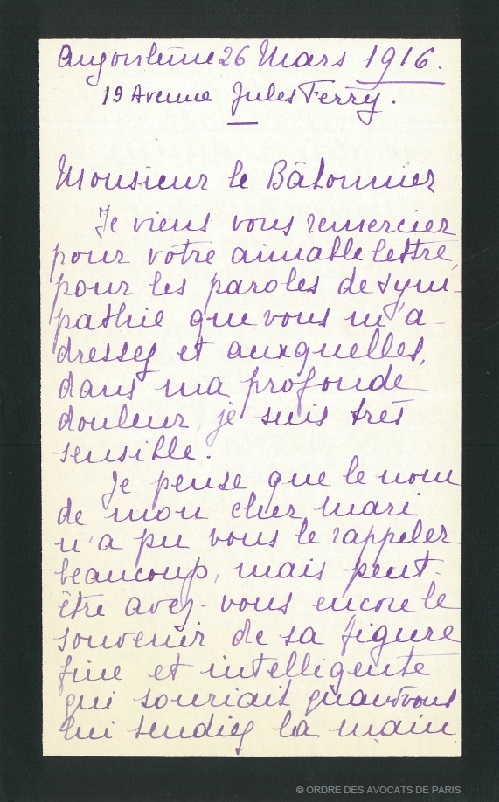 Angoulême 26 Mars 1916.
19 Avenue Jules Ferry.
Monsieur le Bâtonnier
Je viens vous remercier
pour votre aimable lettre,
pour les paroles de sym-
pathie que vous m'a-
dressez et auxquelles,
dans ma profonde
douleur, je suis très
sensible.
Je pense que le nom
de mon cher mari
n'a pu vous le rappeler
beaucoup, mais peut-
être avez-vous encore le
souvenir de sa figure
fine et intelligente
qui souriait quand vous
lui tendiez la main
© ORDRE DES AVOCATS DE PARIS